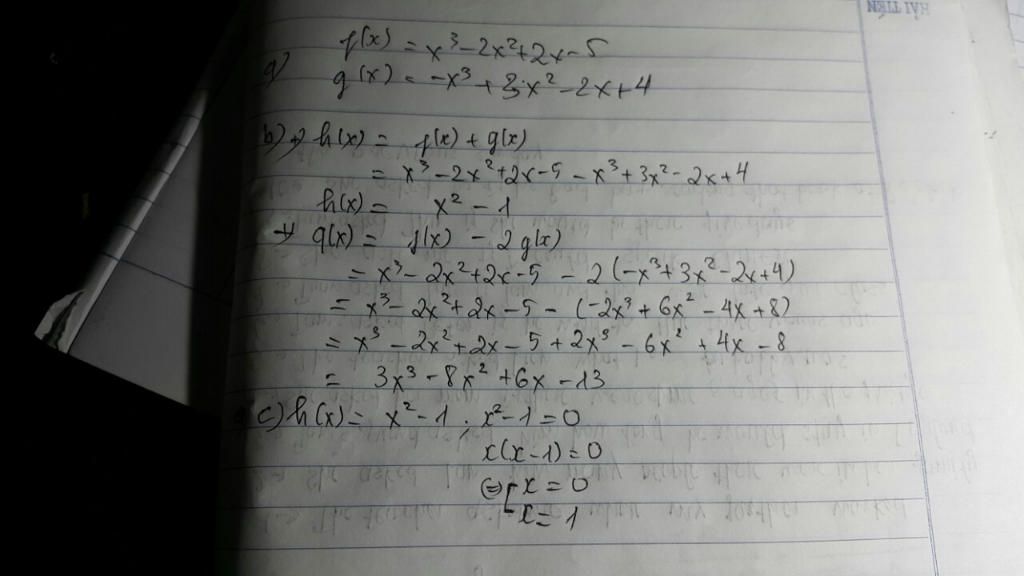 HẢI TIẾN
f(x) = x³ - 2x² + 2x - 5
a) g(x) = -x³ + 3x² - 2x + 4
b) +) h(x) = f(x) + g(x)
= x³ - 2x² + 2x - 5 - x³ + 3x² - 2x + 4
h(x) = x² - 1
+) q(x) = f(x) - 2g(x)
= x³ - 2x² + 2x - 5 - 2(-x³ + 3x² - 2x + 4)
= x³ - 2x² + 2x - 5 - (-2x³ + 6x² - 4x + 8)
= x³ - 2x² + 2x - 5 + 2x³ - 6x² + 4x - 8
= 3x³ - 8x² + 6x - 13
c) h(x) = x² - 1 ; x² - 1 = 0
x(x - 1) = 0
⇔ [ x = 0
x = 1